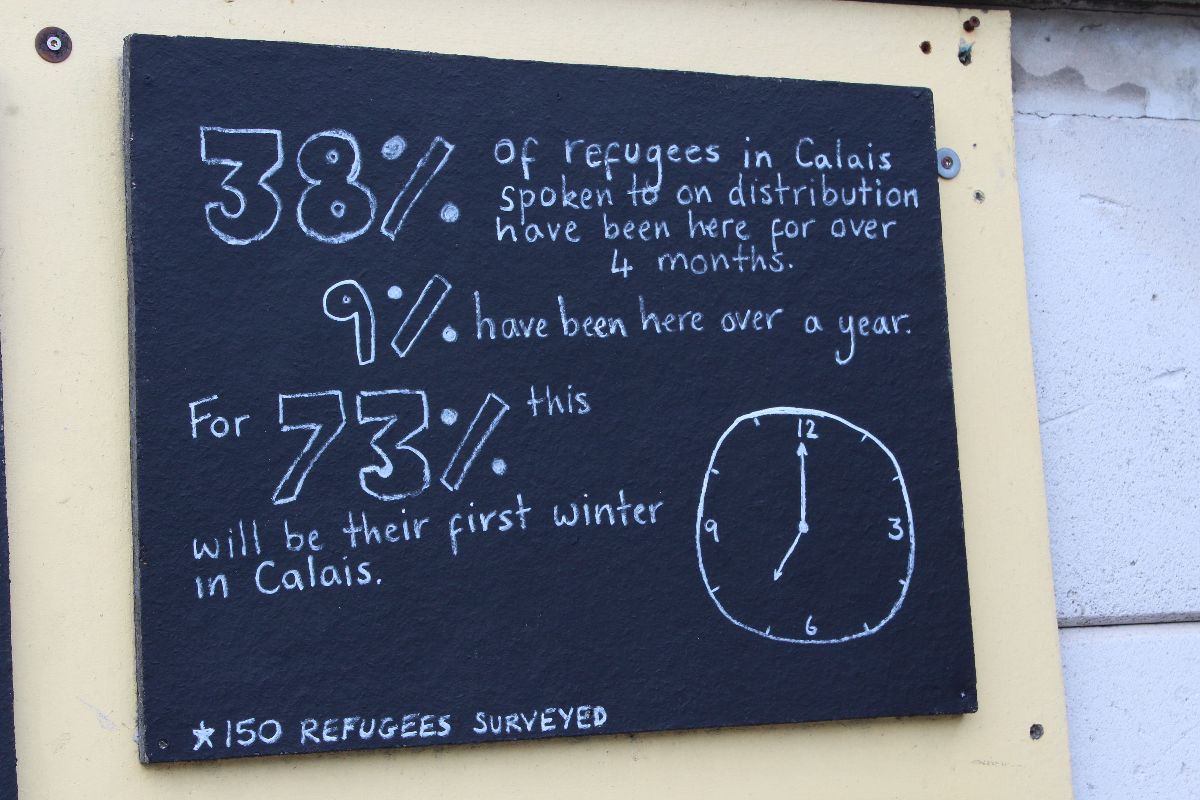 38% of refugees in Calais
spoken to on distribution
have been here for over
4 months.
9% have been here over a year.
For 73% this
will be their first winter
in Calais.
12
9 3
6
★150 REFUGEES SURVEYED